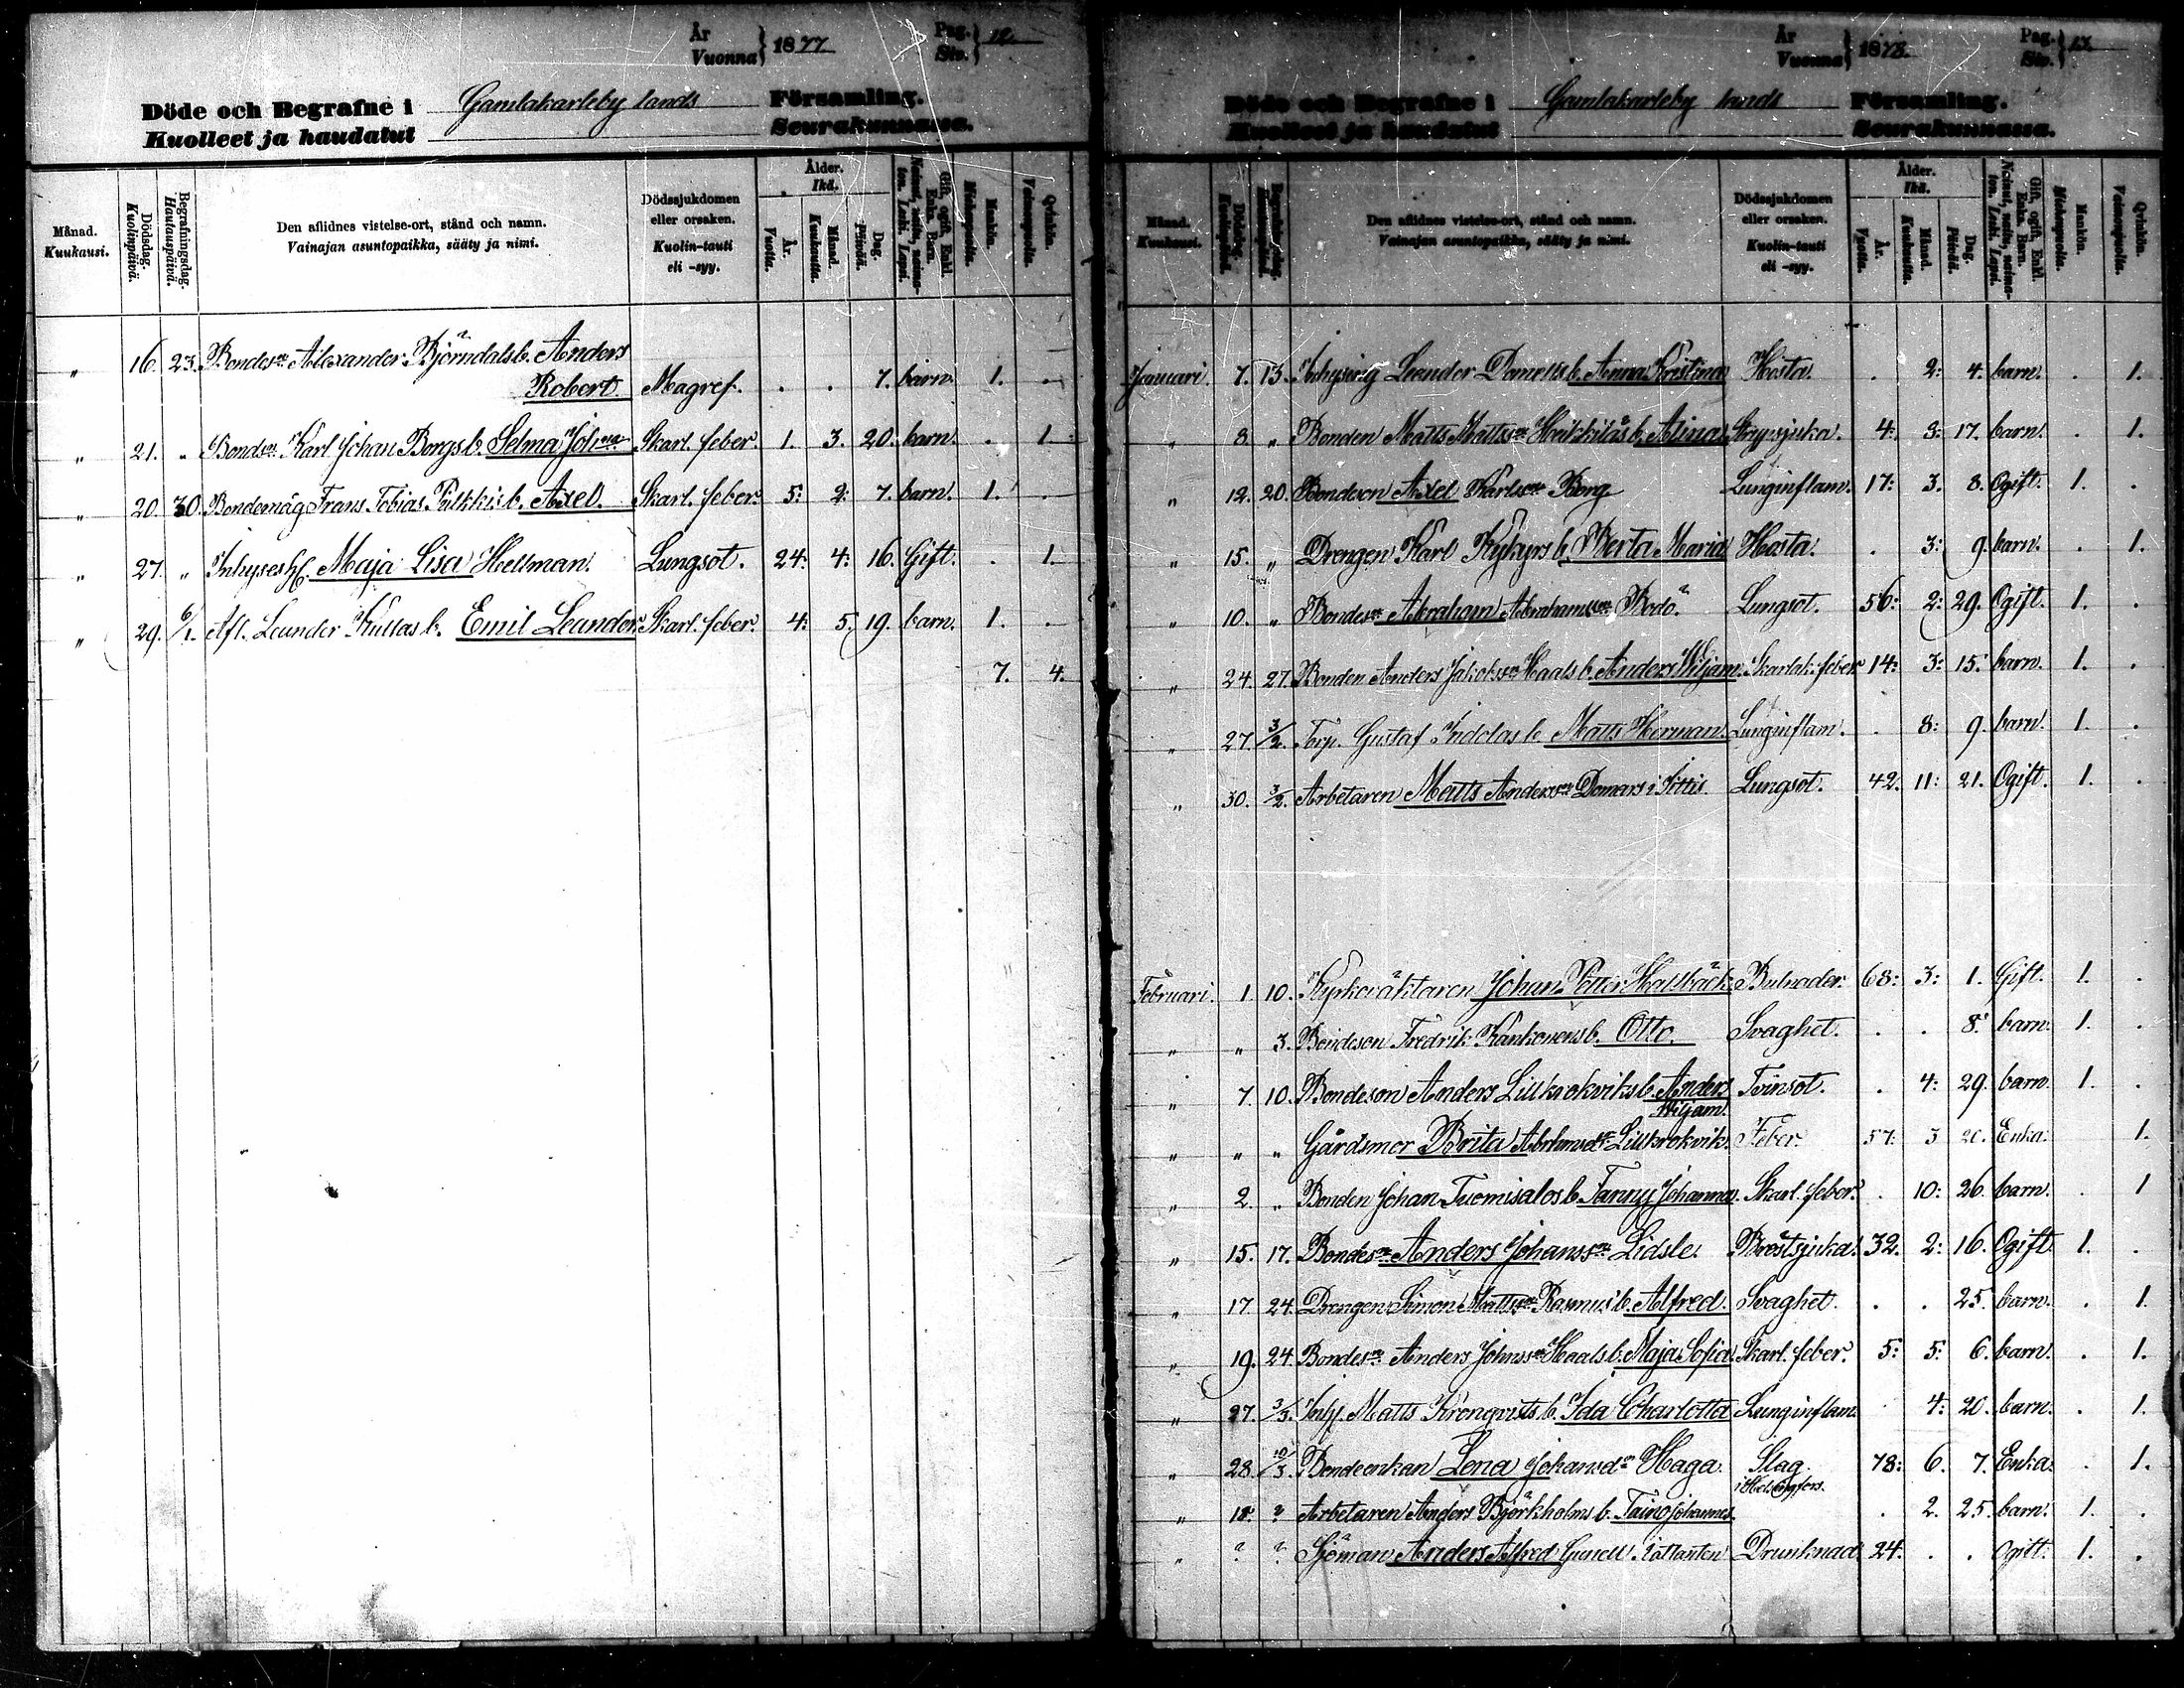 År
Vuonna } 1877
Pag.
Siv. } 12.
Döde och Begrafne i Gamlakarleby lands Församling.
Kuolleet ja haudatut Seurakunnassa.
Månad.
Kuukausi.
Dödsdag.
Kuolinpäivä.
Begrafningsdag.
Hautauspäivä.
Den aflidnes vistelse-ort, stånd och namn.
Vainajan asuntopaikka, sääty ja nimi.
Dödssjukdomen
eller orsaken.
Kuolin-tauti
eli -syy.
Ålder.
Ikä.
År.
Vuotta.
Månad.
Kuukautta.
Dag.
Päivää.
Gift, ogift, Enkl.
Enka, Barn.
Mankön.
Miehenpuolia.
Qvinkön.
Vaimonpuolia.
" 16. 23. Bondes:n Alexander Björndals b. Anders
Robert. Magref. . . 7. barn. 1. .
" 21. " Bondes:n Karl Johan Borgs b. Selma Joh:na Skarl. feber. 1. 3. 20. barn. . 1.
" 20. 30. Bondemåg Frans Tobias Pulkkis b. Axel. Skarl. feber. 5: 2: 7. barn. 1. .
" 27. " Inhyses h. Maja Lisa Hellman. Lungsot. 24: 4: 16. Gift. . 1.
" 29. 6/1. Afl. Leander Kullas b. Emil Leander. Skarl. feber. 4: 5. 19. barn. 1. .
7. 4.
År
Vuonna } 1878.
Pag.
Siv. } 13.
Döde och Begrafne i Gamlakarleby lands Församling.
Kuolleet ja haudatut Seurakunnassa.
Månad.
Kuukausi.
Den aflidnes vistelse-ort, stånd och namn.
Vainajan asuntopaikka, sääty ja nimi.
Dödssjukdomen
eller orsaken.
Kuolin-tauti
eli -syy.
Ålder.
Ikä.
År.
Vuotta.
Månad.
Kuukautta.
Dag.
Päivää.
Gift, ogift, Enkl.
Enka, Barn.
Mankön.
Miehenpuolia.
Qvinkön.
Vaimonpuolia.
Januari. 7. 13. Inhysing Leander Daniells b. Anna Kristina Hosta. . 2: 4. barn. . 1.
" 8. " Bonden Matts Matts:n Heikkiläs b. Alina Strypsjuka. 4: 3: 17. barn. . 1.
" 12. 20. Bondeson Axel Karls:n Borg Lunginflam. 17: 3. 8. Ogift. 1. .
" 15. " Drengen Karl Kykyrs b. Berta Maria Hosta. . 3: 9. barn. . 1.
" 10. " Bondes:n Abraham Abrahams:n Bodö. Lungsot. 56: 2: 29. Ogift. 1. .
" 24. 27. Bonden Anders Jakobs:n Haals b. Anders Viljam. Skarlak. feber 14: 3: 15. barn. 1. .
" 27. 3/2. Torp. Gustaf Indolas b. Matts Herman. Lunginflam. . 8: 9. barn. 1. .
" 30. 3/2. Arbetaren Matts Anders:n Domars i Såttis Lungsot. 42. 11: 21. Ogift. 1. .
Februari. 1. 10. Kyrkväktaren Johan Petter Hallbäck. Bulnader. 68: 3: 1. Gift. 1. .
" " 3. Bondeson Fredrik Kankonens b. Otto. Svaghet. . . 8. barn. 1. .
" 7. 10. Bondeson Anders Lillkrokviks b. Anders Tvinsot. . 4: 29. barn. 1. .
Viljam.
" " " Gårdsmor Brita Abrahamsd:r Lillkrokvik. Feber. 57: 3 20. Enka. 1.
" 2. " Bonden Johan Tuomisalos b. Fanny Johanna. Skarl. feber. . 10: 26. barn. . 1
" 15. 17. Bondes:n Anders Johans:n Lidsle. Bröstsjuka. 32. 2: 16. Ogift. 1. .
" 17. 24. Drengen Simon Matts:n Rasmus b. Alfred. Svaghet. . . 25. barn. . 1.
" 19. 24. Bondes:n Anders Johns:n Haals b. Maja Sofia. Skarl. feber. 5: 5: 6. barn. . 1.
" 27. 3/3. Inh. Matts Kronqvists b. Ida Charlotta Lunginflam. . 4: 20. barn. . 1.
" 28. 10/3. Bondeenkan Lena Johansd:r Haga. Slag. 78: 6. 7. Enka. . 1.
i Helsingfors.
" 18. ? Arbetaren Anders Björkholms b. Taino Johannes. . 2. 25. barn. 1. .
" ? ? Sjöman Anders Alfred Gunell Drunknad 24. . . Ogift. 1. .